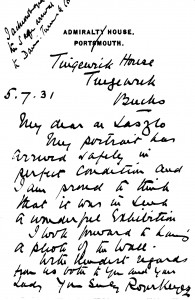 ADMIRALTY HOUSE,
PORTSMOUTH.
Tingewick House
Tingewick
Bucks
5.7.31
My dear de Laszlo
My portrait has
arrived safely in
perfect condition and
I am proud to think
that it was in such
a wonderful Exhibition
I look forward to having
a photo of the Wall.
With kindest regards
from us both to you and your
Lady Yours Sincerely Roger Keyes